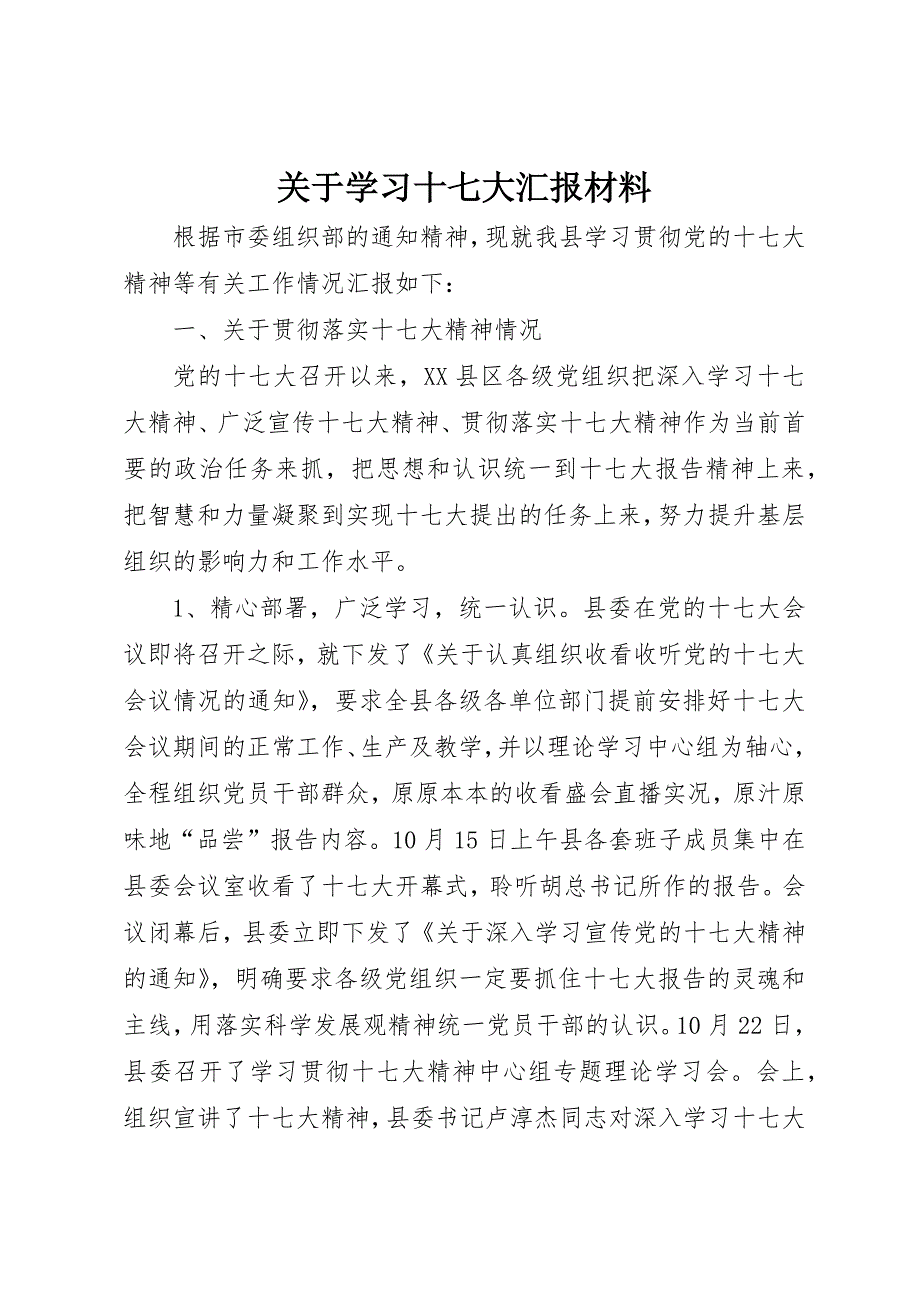 关于学习十七大汇报材料
根据市委组织部的通知精神，现就我县学习贯彻党的十七大
精神等有关工作情况汇报如下：
一、关于贯彻落实十七大精神情况
党的十七大召开以来，XX 县区各级党组织把深入学习十七
大精神、广泛宣传十七大精神、贯彻落实十七大精神作为当前首
要的政治任务来抓，把思想和认识统一到十七大报告精神上来，
把智慧和力量凝聚到实现十七大提出的任务上来，努力提升基层
组织的影响力和工作水平。
1、精心部署，广泛学习，统一认识。县委在党的十七大会
议即将召开之际，就下发了《关于认真组织收看收听党的十七大
会议情况的通知》，要求全县各级各单位部门提前安排好十七大
会议期间的正常工作、生产及教学，并以理论学习中心组为轴心，
全程组织党员干部群众，原原本本的收看盛会直播实况，原汁原
味地“品尝”报告内容。10 月 15 日上午县各套班子成员集中在
县委会议室收看了十七大开幕式，聆听胡总书记所作的报告。会
议闭幕后，县委立即下发了《关于深入学习宣传党的十七大精神
的通知》，明确要求各级党组织一定要抓住十七大报告的灵魂和
主线，用落实科学发展观精神统一党员干部的认识。10 月 22 日，
县委召开了学习贯彻十七大精神中心组专题理论学习会。会上，
组织宣讲了十七大精神，县委书记卢淳杰同志对深入学习十七大